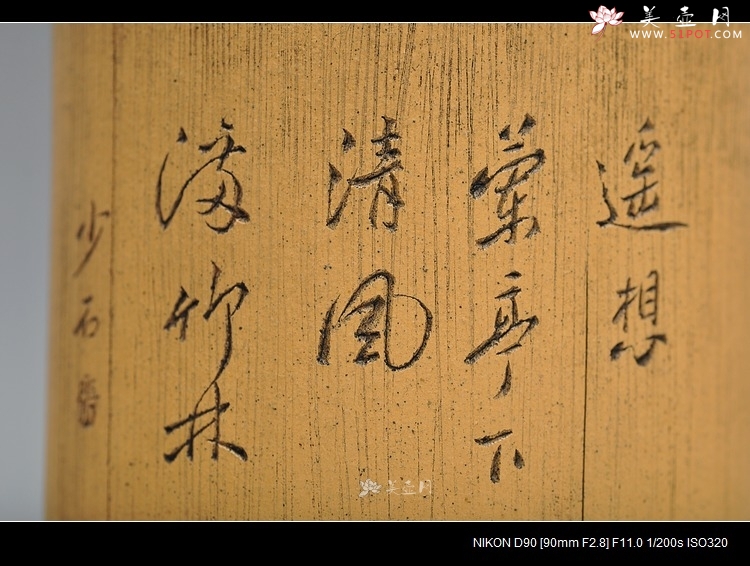 美壶网
WWW.51POT.COM
遥想
兰亭下
清风
满竹林
少石
美壶网
NIKON D90 [90mm F2.8] F11.0 1/200s ISO320